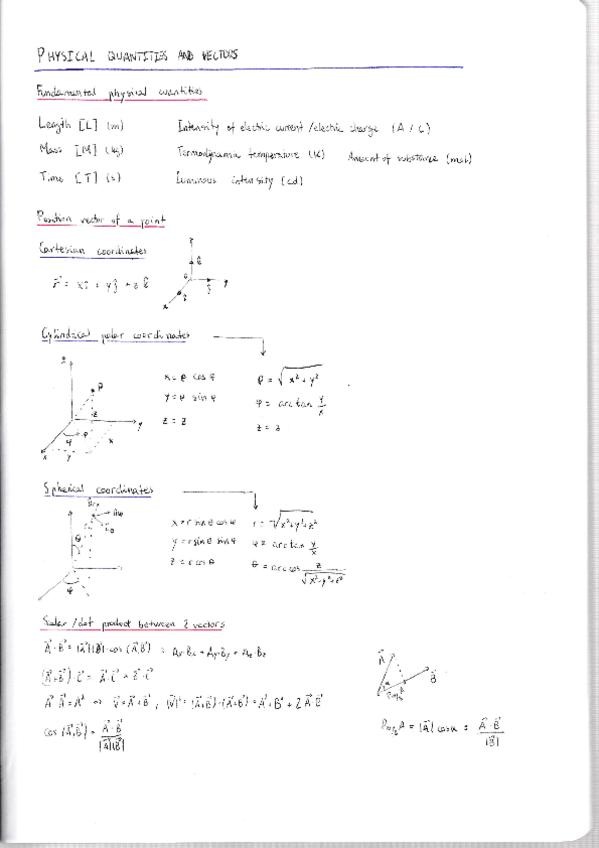 PHYSICAL QUANTITIES AND VECTORS
Fundamental physical quantities
Length [L] (m) Intensity of electric current/electric charge (A / C)
Mass [M] (kg) Termodynamic temperature (K) Amount of substance (mol)
Time [T] (s) Luminous intensity (cd)
Position vector of a point
Cartesian coordinates
r⃗ = xî + yĵ + z k̂
z
k̂
y
ĵ
x
Cylindrical polar coordinates
z
P
z
y
φ
ρ
x
y
x
x = ρ cos φ ρ = √(x² + y²)
y = ρ sin φ φ = arctan y/x
z = z z = z
Spherical coordinates
θ
φ
x = r sin θ cos φ r = √(x² + y² + z²)
y = r sin θ sin φ φ = arctan y/x
z = r cos θ θ = arccos z/√(x² + y² + z²)
Scalar/dot product between 2 vectors
A⃗ · B⃗ = |A⃗||B⃗| · cos (A⃗,B⃗) = Ax·Bx + Ay·By + Az·Bz
(A⃗+B⃗) · C⃗ = A⃗·C⃗ + B⃗·C⃗
A⃗·A⃗ = A² ⇒ v⃗ = A⃗ + B⃗, |v⃗|² = (A⃗+B⃗)·(A⃗+B⃗) = A² + B² + 2A⃗·B⃗
cos (A⃗,B⃗) = A⃗·B⃗/|A⃗||B⃗|
A⃗
B⃗
α
= |A⃗| cos α = A⃗·B⃗/|B⃗|